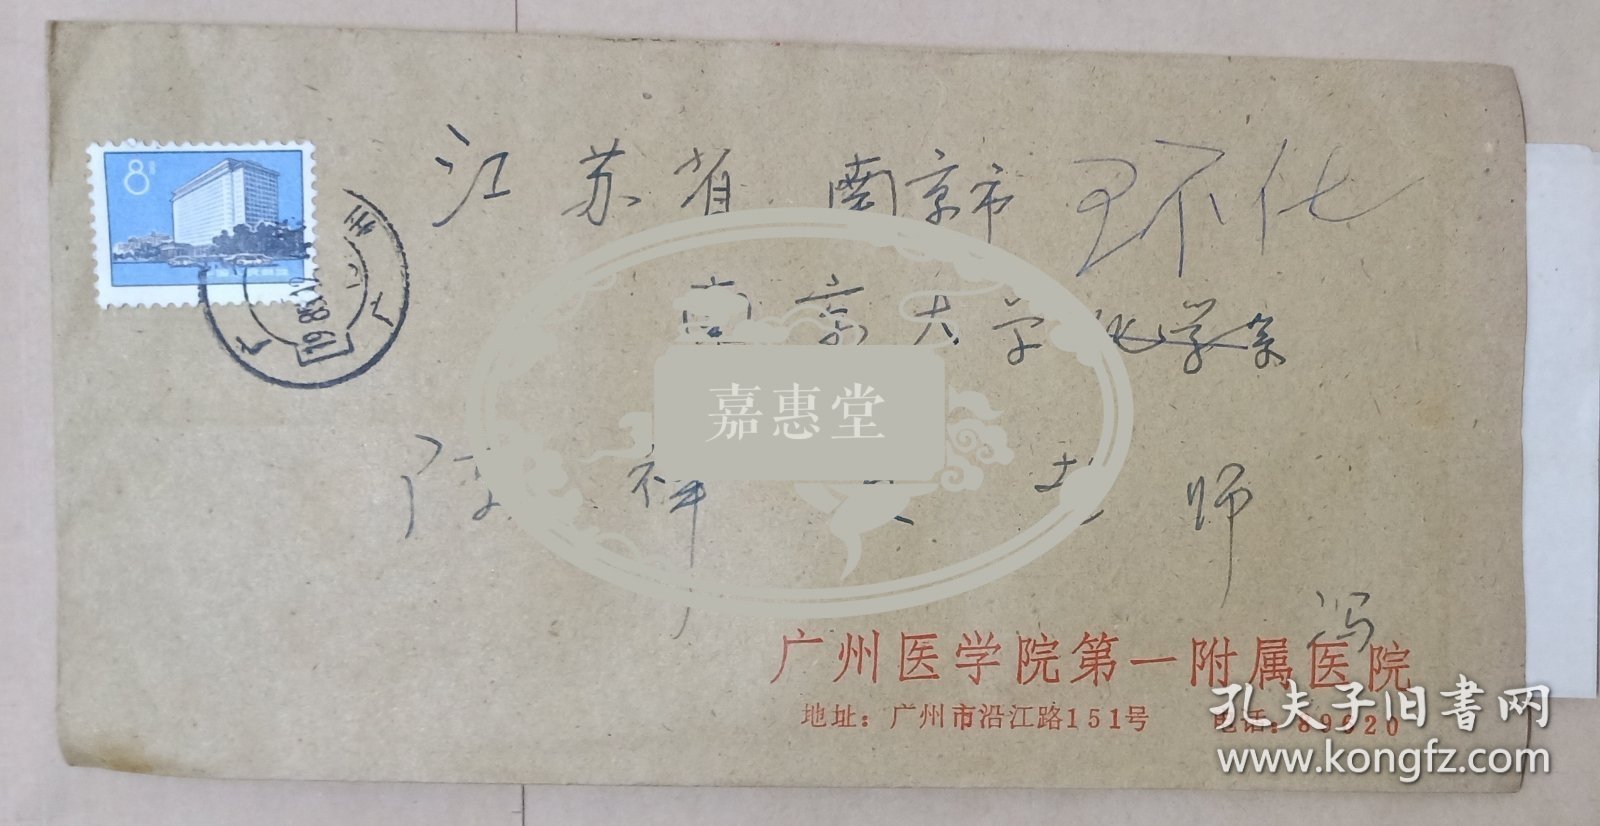 8分
江苏省 南京市 环化
南京大学化学系
陈祥 老师
冯
嘉惠堂
广州医学院第一附属医院
地址：广州市沿江路151号 电话：89920
孔夫子旧书网
www.kongfz.com